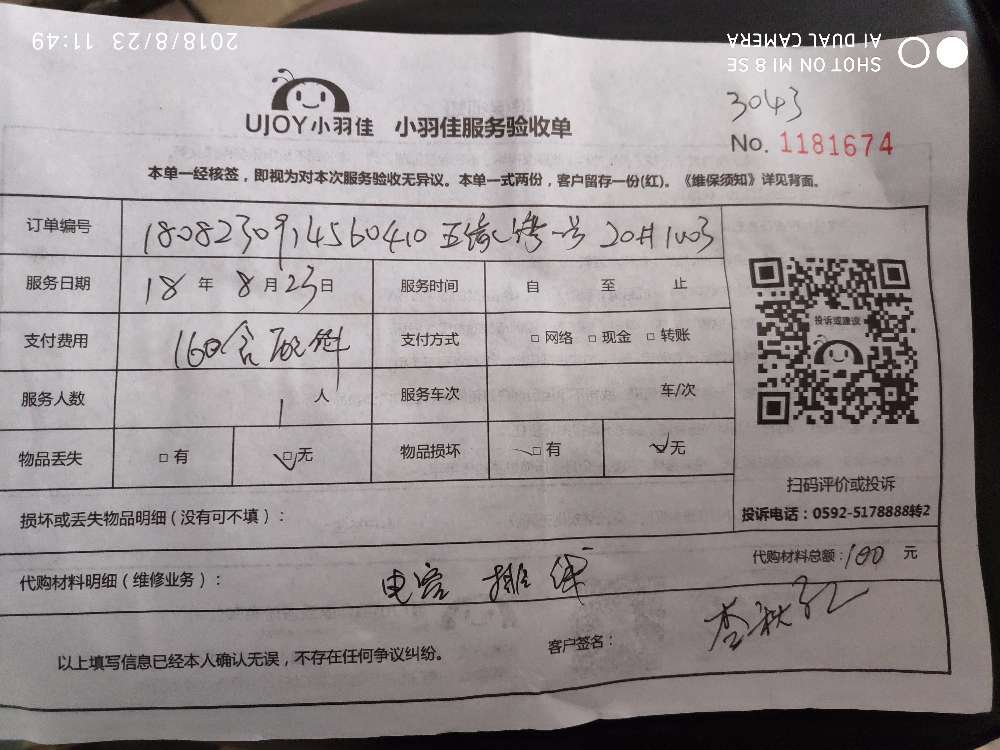 2018/8/23 11:49
SHOT ON MI 8 SE
AI DUAL CAMERA
3043
UJOY小羽佳 小羽佳服务验收单
No. 1181674
本单一经核签，即视为对本次服务验收无异议。本单一式两份，客户留存一份(红)。《维保须知》详见背面。
订单编号 180823091456041０ 五缘 一号 20# 1003
服务日期 18 年 8 月 23 日 服务时间 自 至 止
支付费用 160含配件 支付方式 □ 网络 □ 现金 □ 转账
服务人数 1 人 服务车次 车/次
物品丢失 □ 有 □ 无 物品损坏 □ 有 □ 无
投诉或建议
扫码评价或投诉
投诉电话：0592-5178888转2
损坏或丢失物品明细（没有可不填）：
代购材料明细（维修业务）： 电容 排线 代购材料总额：100 元
以上填写信息已经本人确认无误，不存在任何争议纠纷。 客户签名： 李秋红